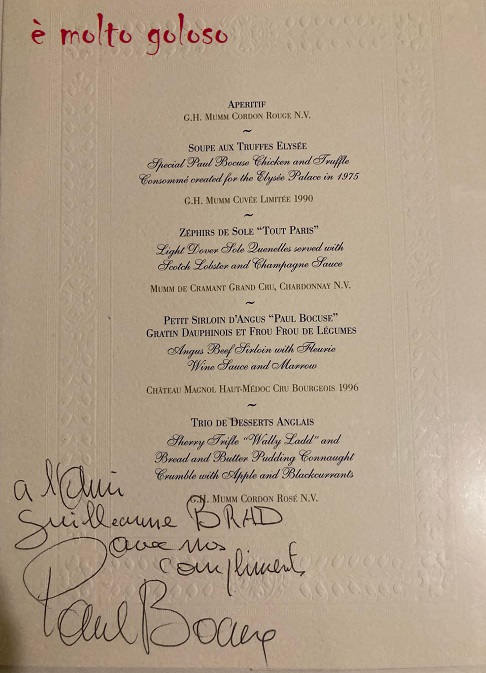 è molto goloso
APERITIF
G.H. MUMM CORDON ROUGE N.V.
~
SOUPE AUX TRUFFES ELYSÉE
Special Paul Bocuse Chicken and Truffle
Consommé created for the Elysée Palace in 1975
G.H. MUMM CUVÉE LIMITÉE 1990
~
ZÉPHIRS DE SOLE "TOUT PARIS"
Light Dover Sole Quenelles served with
Scotch Lobster and Champagne Sauce
MUMM DE CRAMANT GRAND CRU, CHARDONNAY N.V.
~
PETIT SIRLOIN D'ANGUS "PAUL BOCUSE"
GRATIN DAUPHINOIS ET FROU FROU DE LÉGUMES
Angus Beef Sirloin with Fleurie
Wine Sauce and Marrow
CHÂTEAU MAGNOL HAUT-MÉDOC CRU BOURGEOIS 1996
~
TRIO DE DESSERTS ANGLAIS
Sherry Trifle "Wally Ladd" and
Bread and Butter Pudding Connaught
Crumble with Apple and Blackcurrants
G.H. MUMM CORDON ROSÉ N.V.
a l'ami
Guilleaume BRAD
avec nos
compliments
Paul Bocuse